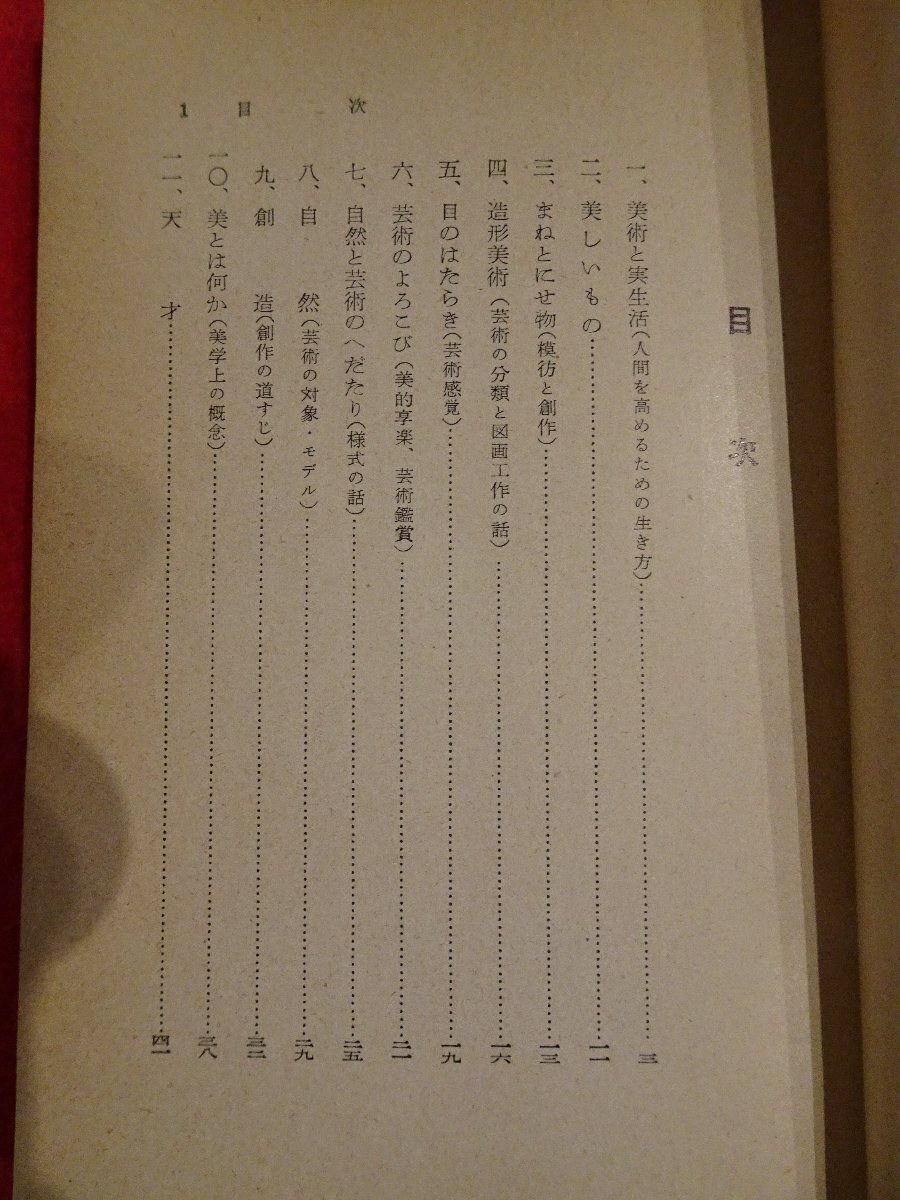 目次
一、美術と実生活(人間を高めるための生き方)……三
二、美しいもの……一一
三、まねとにせ物(模彷と創作)……一三
四、造形美術(芸術の分類と図画工作の話)……一六
五、目のはたらき(芸術感覚)……一九
六、芸術のよろこび(美的享楽、芸術鑑賞)……二一
七、自然と芸術のへだたり(様式の話)……二五
八、自然(芸術の対象・モデル)……二九
九、創造(創作の道すじ)……三二
一〇、美とは何か(美学上の概念)……三八
一一、天才……四一
1 目次